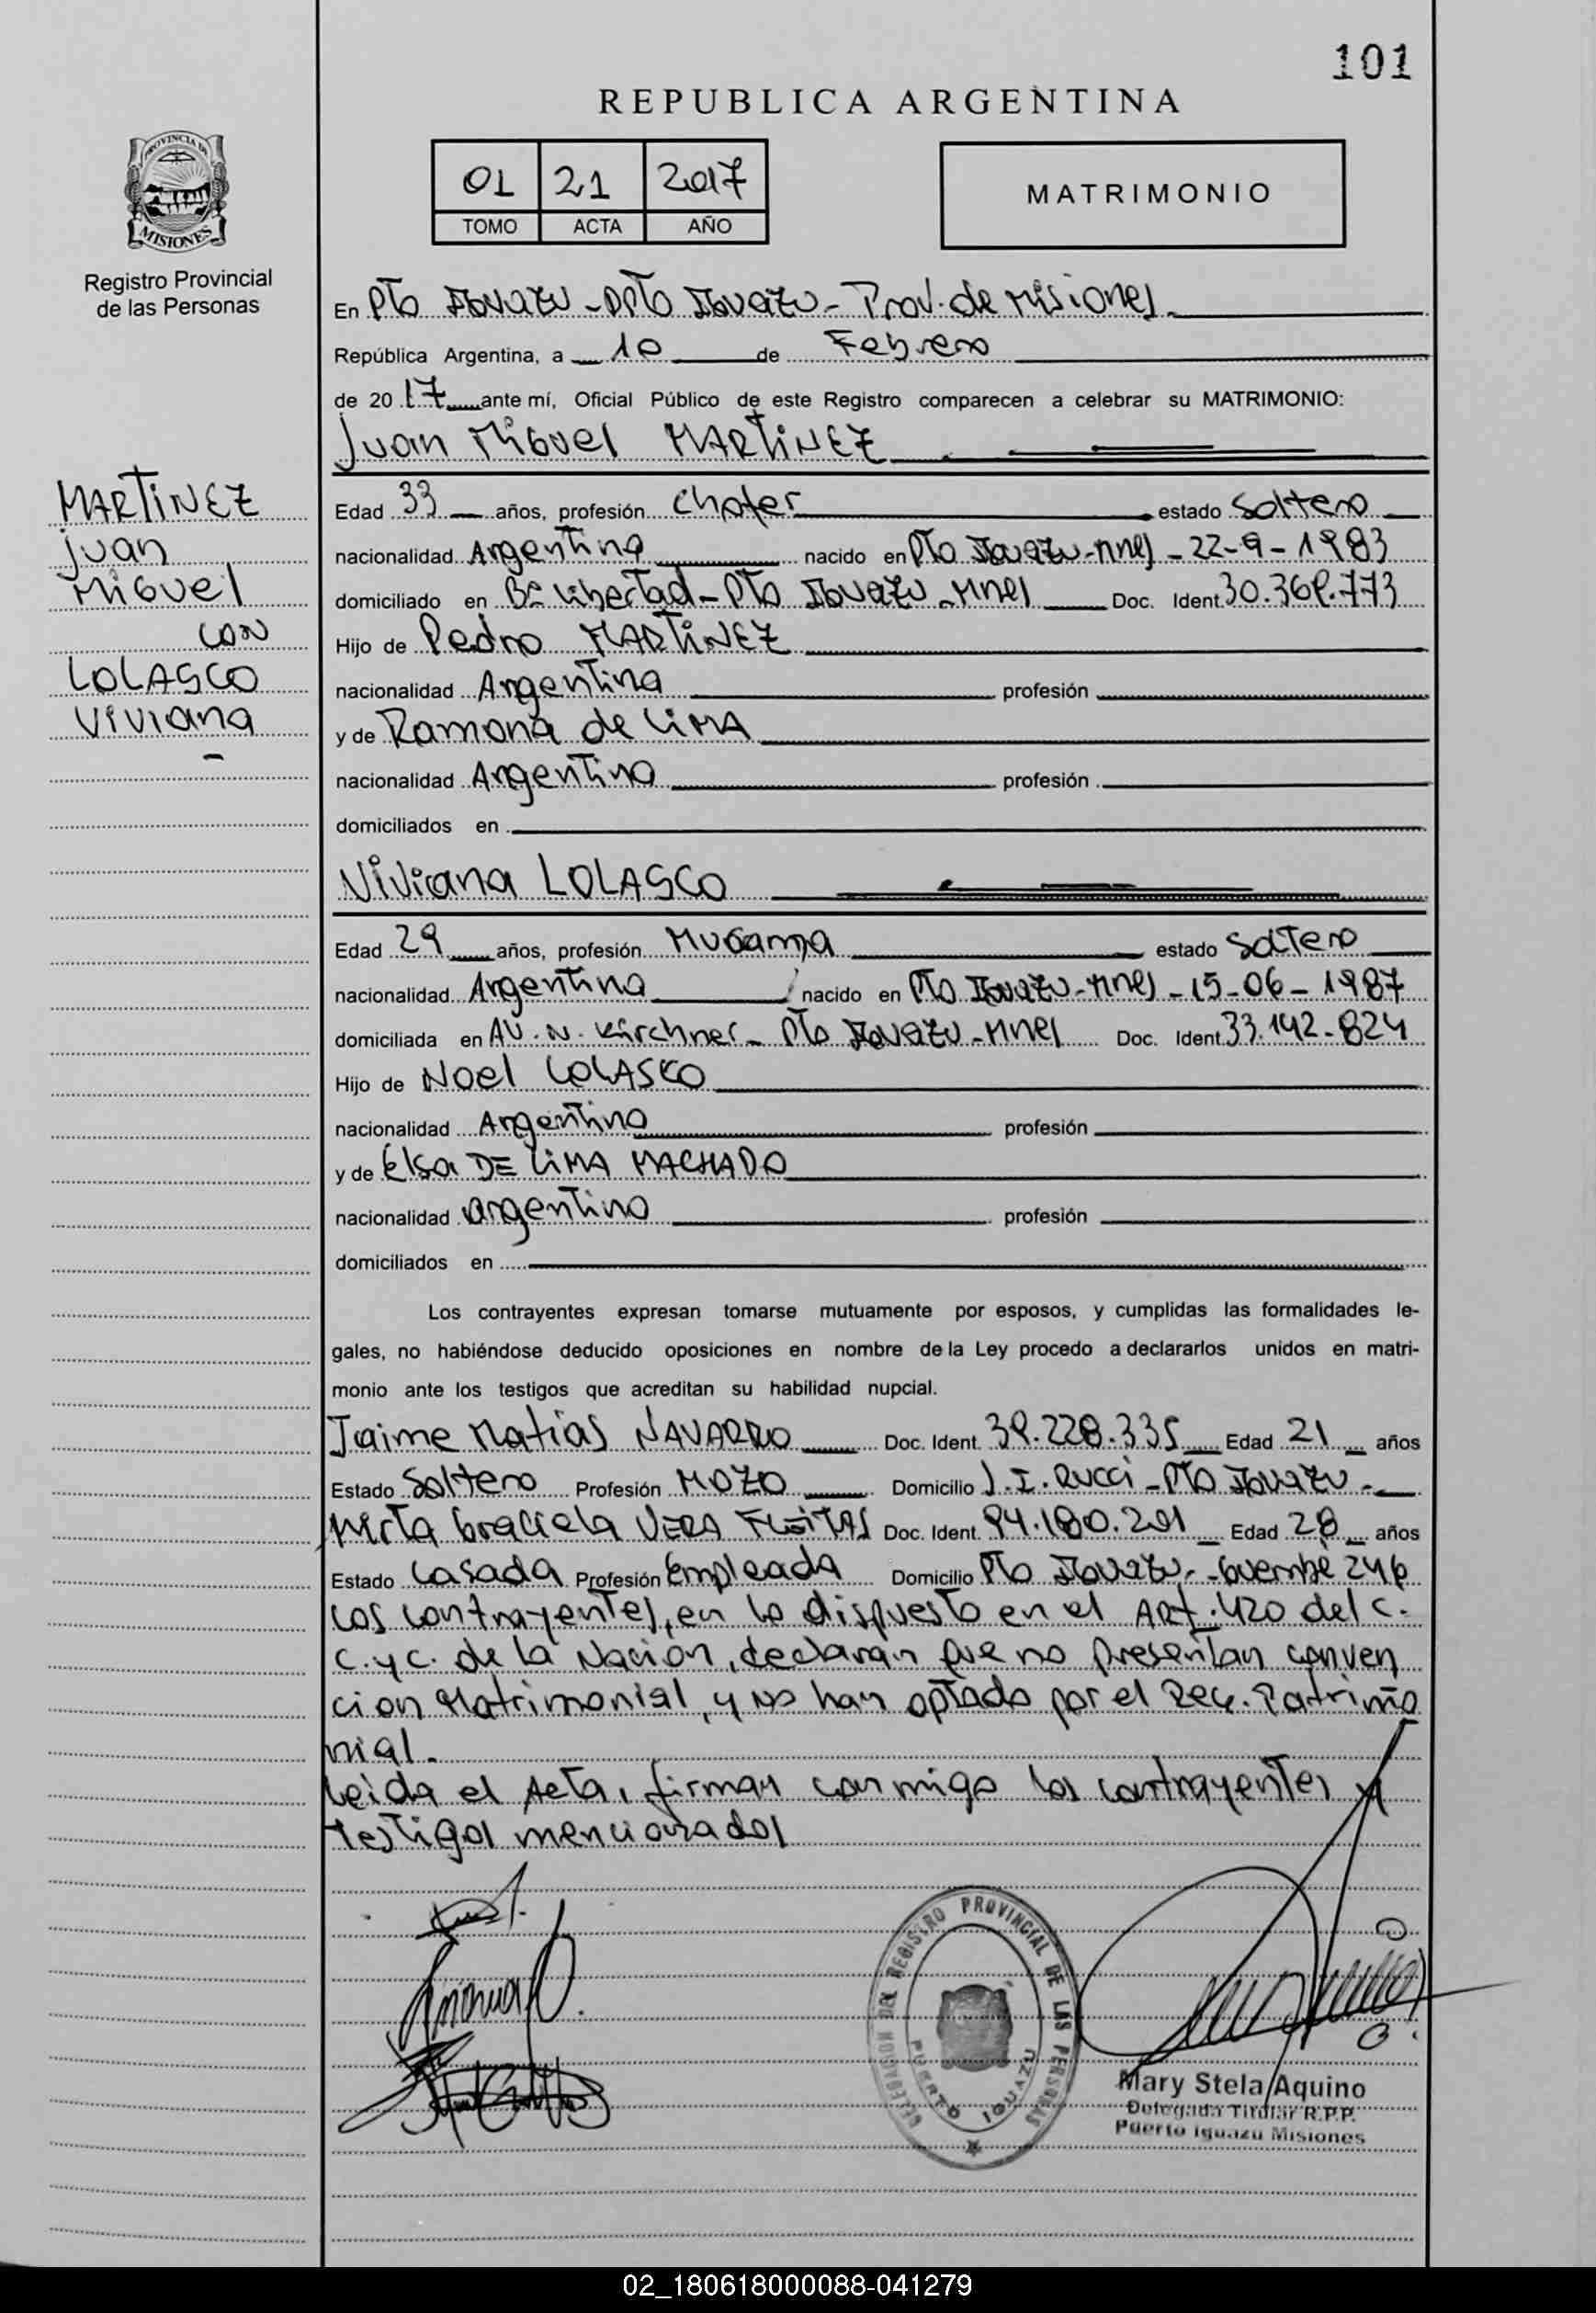 101
REPUBLICA ARGENTINA
01 21 2017
TOMO ACTA AÑO
MATRIMONIO
PROVINCIA DE
MISIONES
Registro Provincial
de las Personas
En Pto Iguazu - Dpto Iguazu - Prov. de Misiones
República Argentina, a 10 de Febrero
de 2017 ante mí, Oficial Público de este Registro comparecen a celebrar su MATRIMONIO:
Juan Miguel MARTINEZ
MARTINEZ
Juan
Miguel
CON
LOLASCO
Viviana
-
Edad 33 años, profesión Chofer estado Soltero
nacionalidad Argentina nacido en Pto Iguazu - Mnes - 22-9-1983
domiciliado en Bº Libertad - Pto Iguazu - Mnes Doc. Ident.
Hijo de Pedro MARTINEZ
nacionalidad Argentina profesión
y de Ramona de LIMA
nacionalidad Argentina profesión
domiciliados en
Viviana LOLASCO
Edad 29 años, profesión Mucama estado Soltero
nacionalidad Argentina nacido en Pto Iguazu - Mnes - 15-06-1987
domiciliada en AV. N. Kirchner - Pto Iguazu - Mnes Doc. Ident. 33.142.824
Hijo de Noel LOLASCO
nacionalidad Argentino profesión
y de Elsa DE LIMA MACHADO
nacionalidad argentino profesión
domiciliados en
Los contrayentes expresan tomarse mutuamente por esposos, y cumplidas las formalidades le-
gales, no habiéndose deducido oposiciones en nombre de la Ley procedo a declararlos unidos en matri-
monio ante los testigos que acreditan su habilidad nupcial.
Jaime Matias NAVARRO Doc. Ident. 39.228.335 Edad 21 años
Estado Soltero Profesión MOZO Domicilio J. I. Rucci - Pto Iguazu -
Mirta Graciela VERA FLEITAS Doc. Ident. 94.180.201 Edad 28 años
Estado Casada Profesión Empleada Domicilio Pto Iguazu -
Los contrayentes, en lo dispuesto en el ART. 420 del C.
C. y C. de la Nación, declaran que no presentan conven
cion Matrimonial, y no han optado por el Reg. Patrimo
nial.
Leida el Acta, firman conmigo los contrayentes y
testigos mencionados
DELEGACION DEL REGISTRO PROVINCIAL DE LAS PERSONAS
PUERTO IGUAZU
Mary Stela Aquino
Delegada Titular R.P.P.
Puerto Iguazu Misiones
02_180618000088-041279